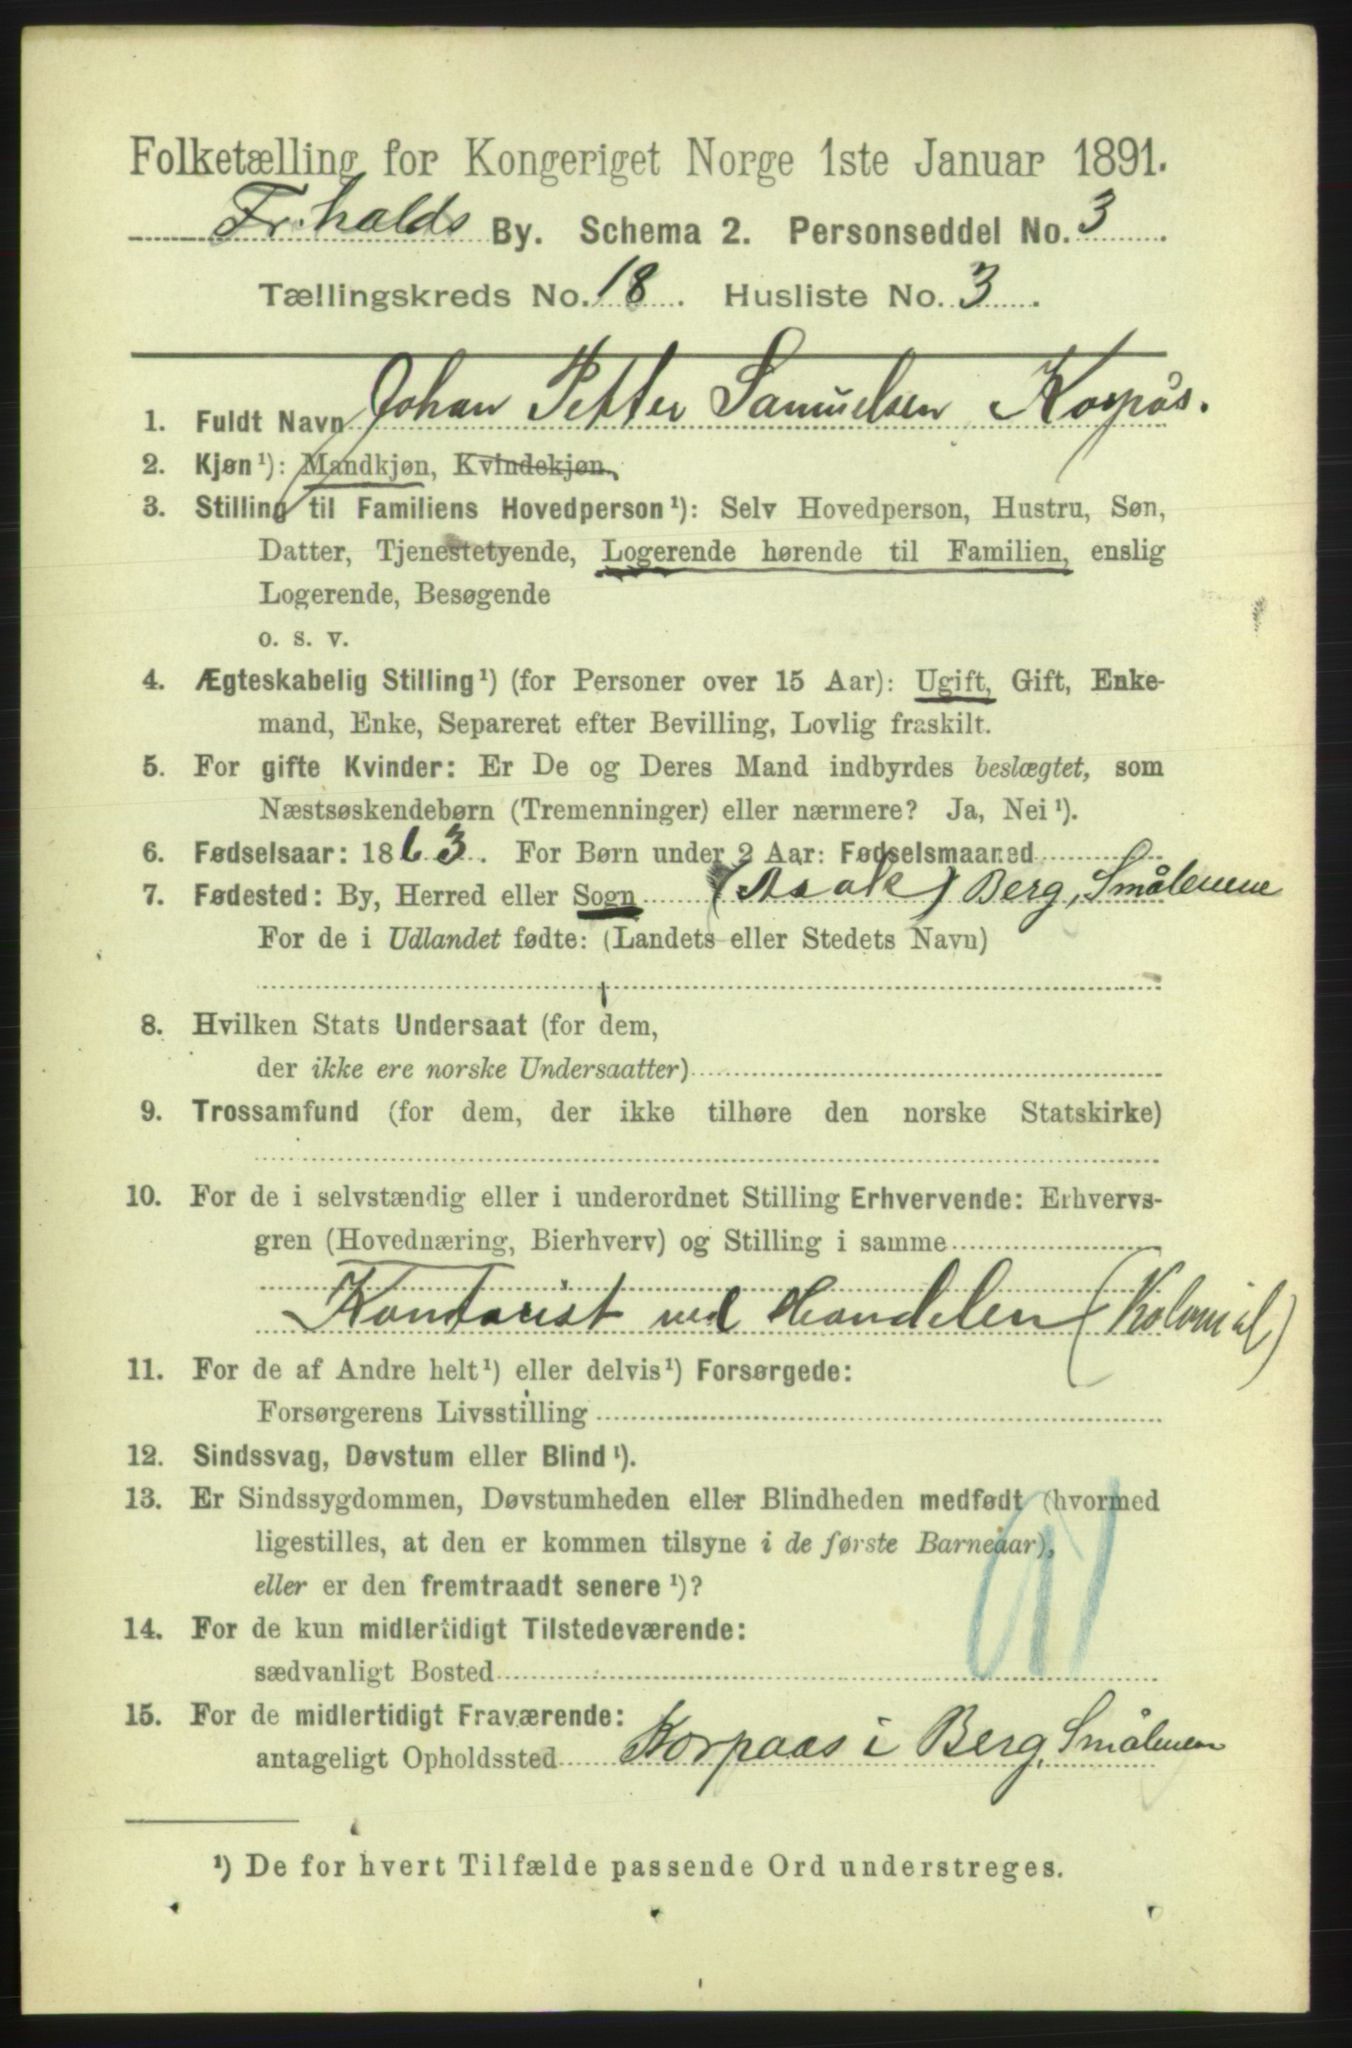 Folketælling for Kongeriget Norge 1ste Januar 1891.
Fr.halds By. Schema 2. Personseddel No. 3.
Tællingskreds No. 18. Husliste No. 3.
1. Fuldt Navn Johan Petter Samuelsen Korpås.
2. Kjøn¹): Mandkjøn, Kvindekjøn.
3. Stilling til Familiens Hovedperson¹): Selv Hovedperson, Hustru, Søn,
Datter, Tjenestetyende, Logerende hørende til Familien, enslig
Logerende, Besøgende
o. s. v.
4. Ægteskabelig Stilling¹) (for Personer over 15 Aar): Ugift, Gift, Enke-
mand, Enke, Separeret efter Bevilling, Lovlig fraskilt.
5. For gifte Kvinder: Er De og Deres Mand indbyrdes beslægtet, som
Næstsøskendebørn (Tremenninger) eller nærmere? Ja, Nei¹).
6. Fødselsaar: 1863. For Børn under 2 Aar: Fødselsmaaned
7. Fødested: By, Herred eller Sogn (Asak) Berg, Smålenene
For de i Udlandet fødte: (Landets eller Stedets Navn)
8. Hvilken Stats Undersaat (for dem,
der ikke ere norske Undersaatter)
9. Trossamfund (for dem, der ikke tilhøre den norske Statskirke)
10. For de i selvstændig eller i underordnet Stilling Erhvervende: Erhvervs-
gren (Hovednæring, Bierhverv) og Stilling i samme
Kontorist ved Handelen (Kolonial)
11. For de af Andre helt¹) eller delvis¹) Forsørgede:
Forsørgerens Livsstilling
12. Sindssvag, Døvstum eller Blind¹).
13. Er Sindssygdommen, Døvstumheden eller Blindheden medfødt (hvormed
ligestilles, at den er kommen tilsyne i de første Barneaar),
eller er den fremtraadt senere¹)?
14. For de kun midlertidigt Tilstedeværende:
sædvanligt Bosted
15. For de midlertidigt Fraværende:
antageligt Opholdssted Korpaas i Berg, Smålenene
¹) De for hvert Tilfælde passende Ord understreges.